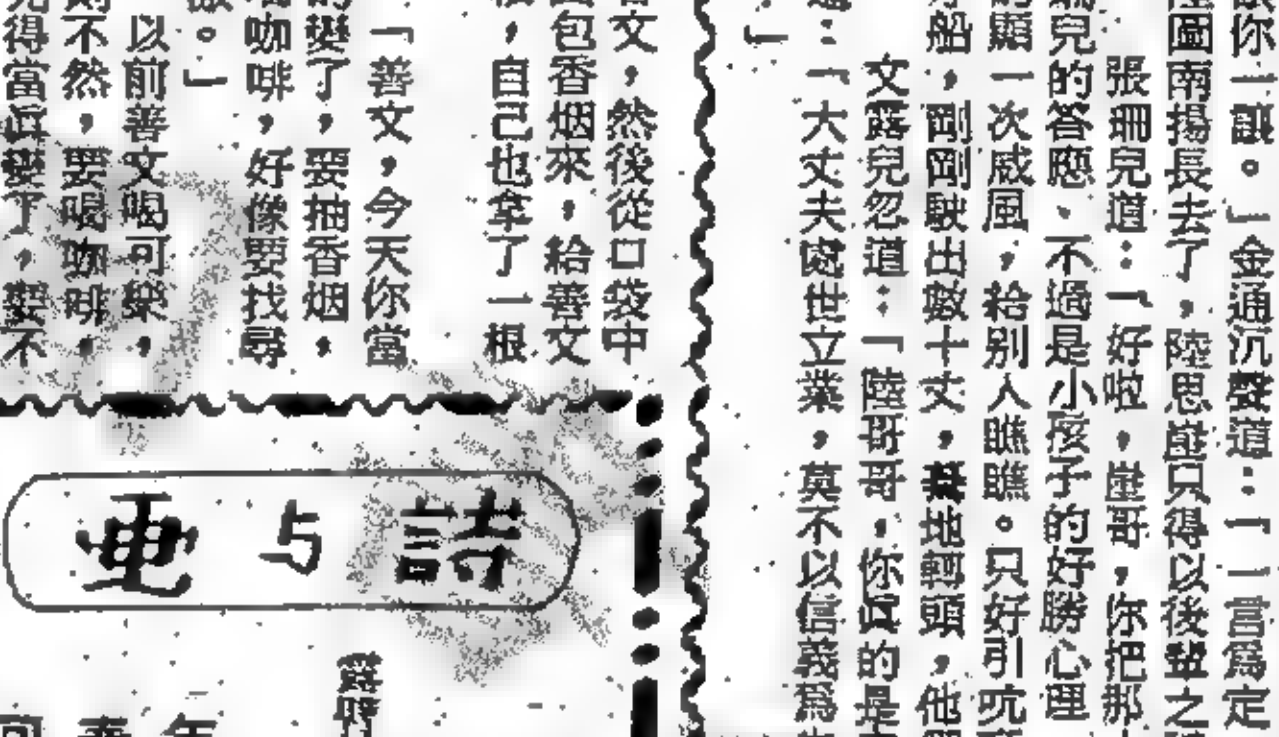 你一讓。」金通沉聲道：「一言爲定
圖南揚長去了，陸思崖只得以後輩之
張珊兒道：「好啦，崖哥，你把那
兒的答應、不過是小孩子的好勝心理
顯一次威風，給别人瞧瞧。只好引吭
船，剛剛駛出數十丈，驀地轉頭，他
文露兒忽道：「陸哥哥，你真的是
：「大丈夫處世立業，莫不以信義爲
」
文，然後從口袋中
包香烟來，給善文
，自己也拿了一根
「善文，今天你當
變了，要抽香烟，
咖啡，好像要找尋
。」
以前善文喝可樂，
不然，要喝咖啡，
得當真變了，變不
詩与画